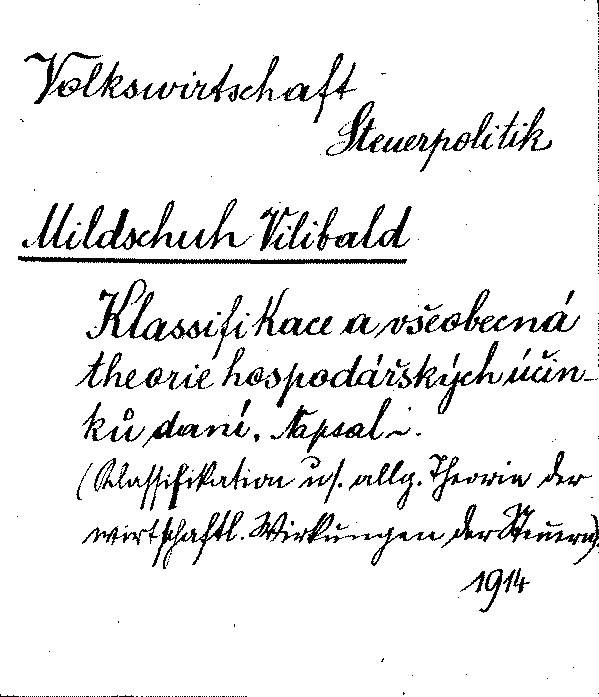 Volkswirtschaft
Steuerpolitik
Mildschuh Vilibald
Klassifikace a všeobecná
theorie hospodářských účin-
ků daní. Napsal –.
(Klassifikation u. allg. Theorie der
wirtschaftl. Wirkungen der Steuern).
1914